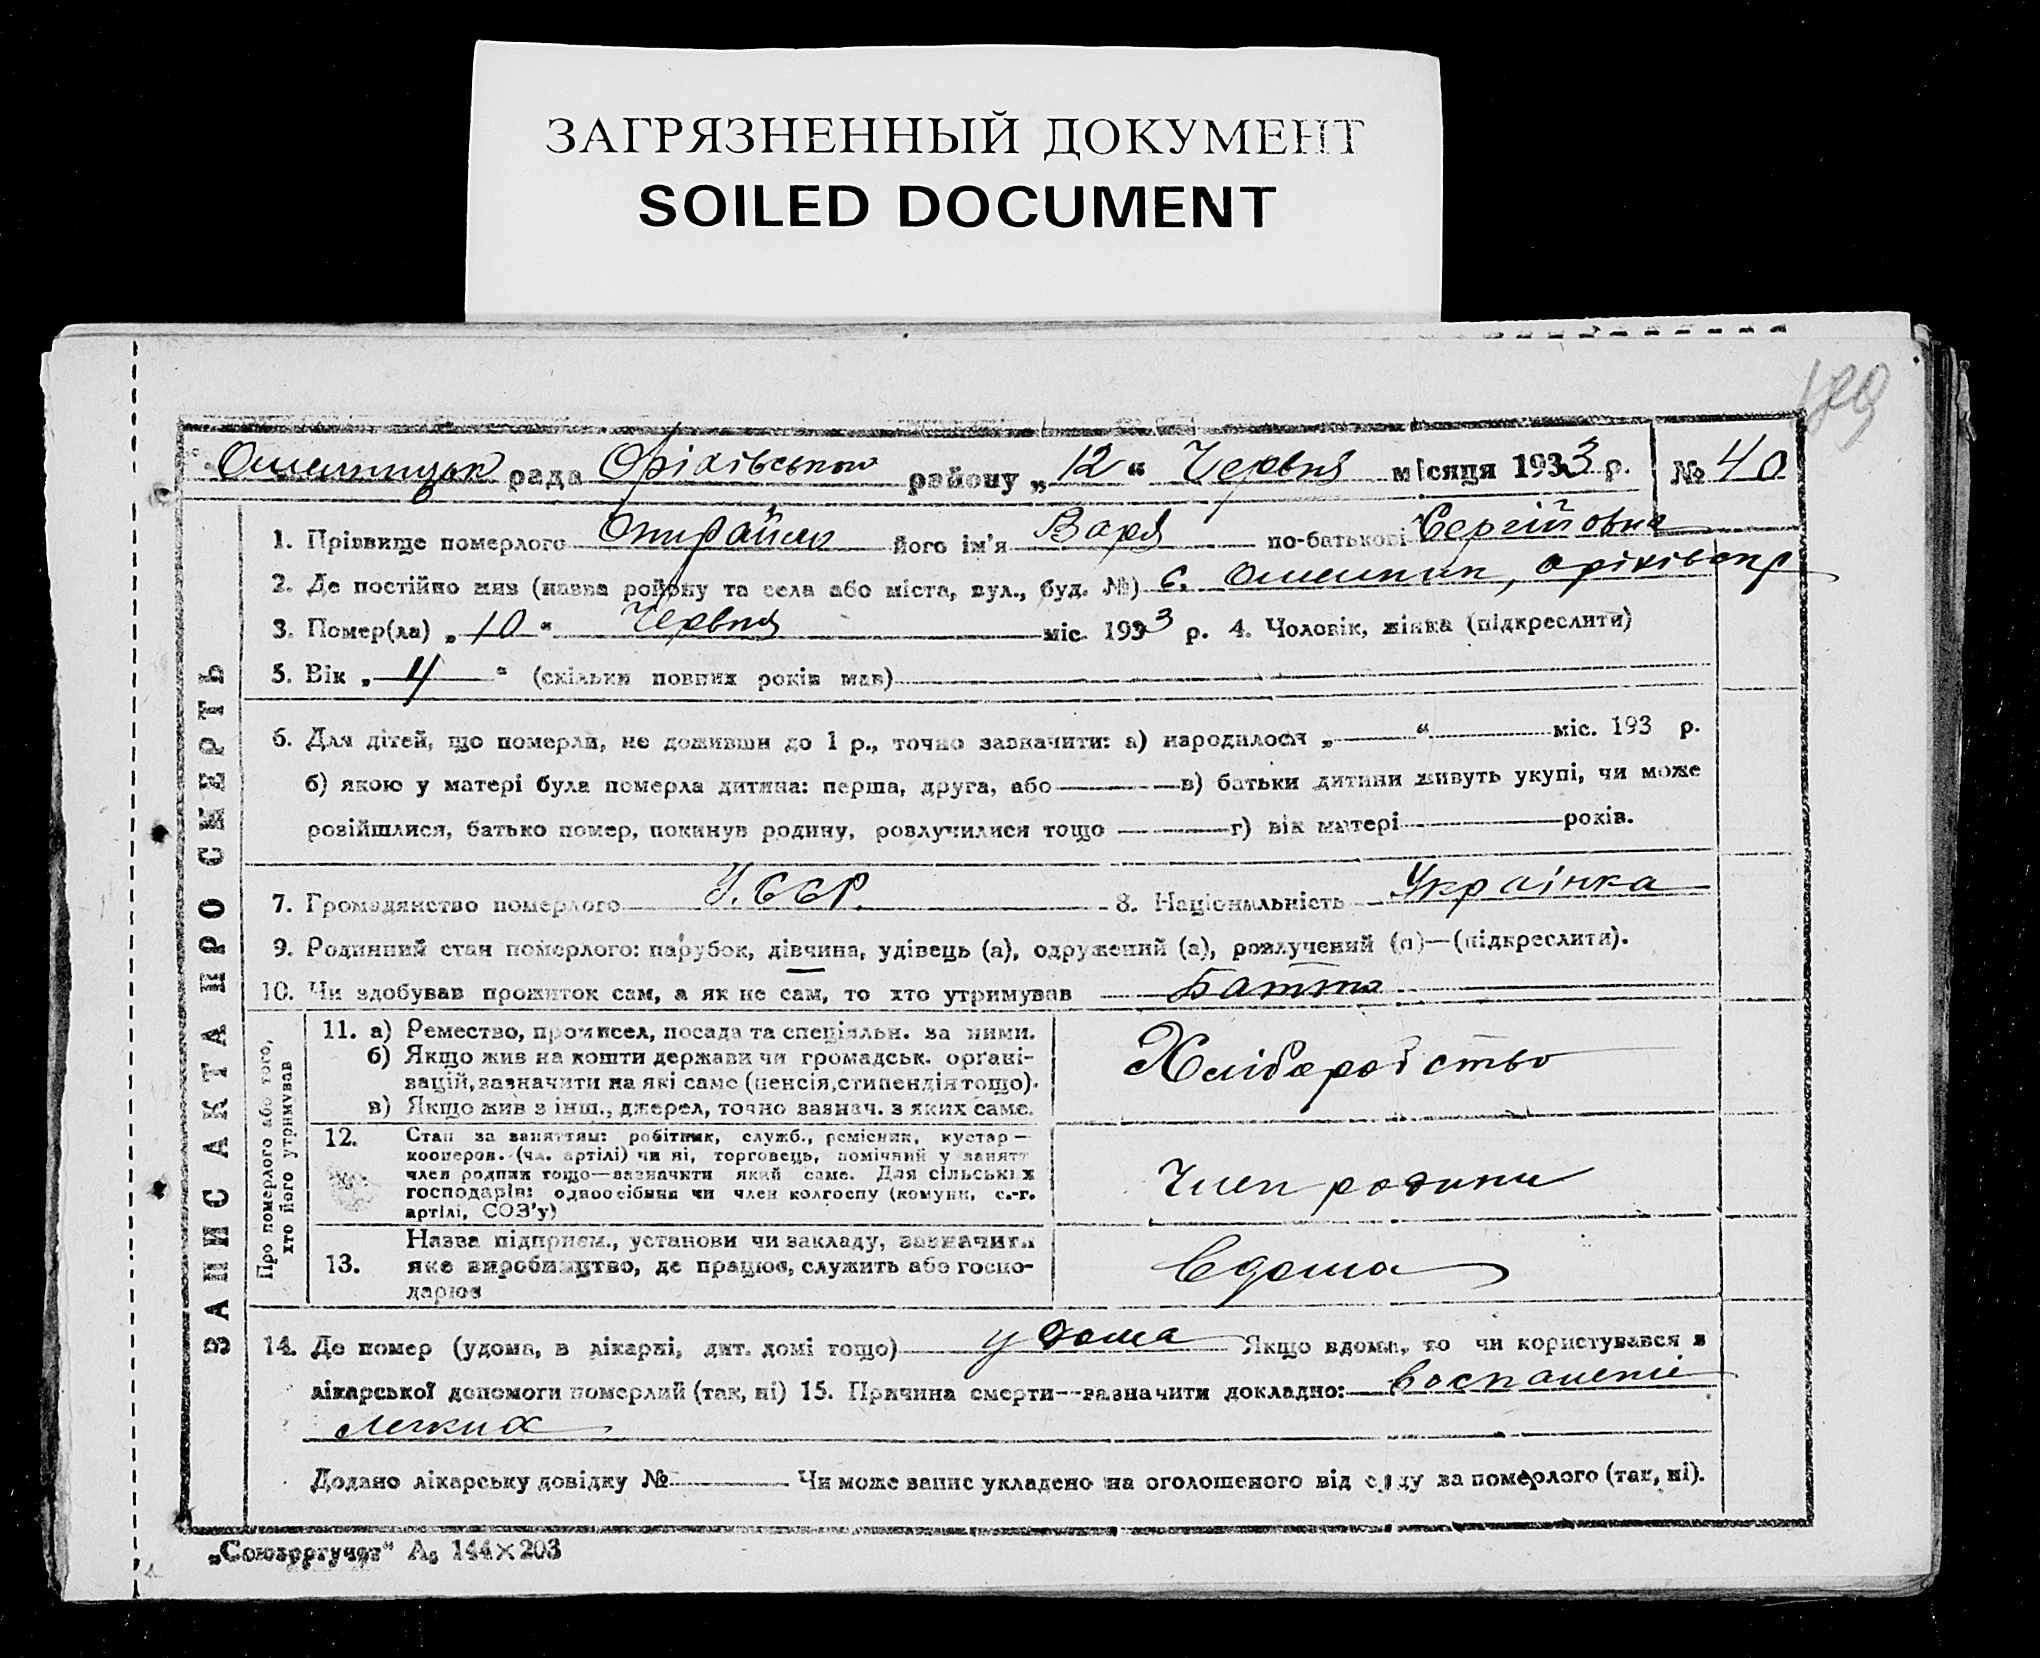 ЗАГРЯЗНЕННЫЙ ДОКУМЕНТ
SOILED DOCUMENT
рада району „12“ Червня місяця 1933 р. № 40
ЗАПИС АКТА ПРО СМЕРТЬ
1. Прізвище померлого його ім'я Варя по-батькові Сергійовна
2. Де постійно жив (назва району та села або міста, вул., буд. №) с.
3. Помер(ла) „10“ Червня міс. 1933 р. 4. Чоловік, жінка (підкреслити)
5. Вік „4“ (скільки повних років мав)
6. Для дітей, що померли, не доживши до 1 р., точно зазначити: а) народилося „ “ міс. 193 р.
б) якою у матері була померла дитина: перша, друга, або в) батьки дитини живуть укупі, чи може
розійшлися, батько помер, покинув родину, розлучилися тощо г) вік матері років.
7. Громадянство померлого У.ССР. 8. Національність Українка
9. Родинний стан померлого: парубок, дівчина, удівець (а), одружений (а), розлучений (а)—(підкреслити).
10. Чи здобував прожиток сам, а як не сам, то хто утримував
Про померлого або того,
хто його утримував
11. а) Ремество, промисел, посада та спеціяльн. за ними.
б) Якщо жив на кошти держави чи громадськ. органі-
зацій, зазначити на які саме (пенсія, стипендія тощо).
в) Якщо жив з інш., джерел, точно зазнач. з яких саме.
Хліборобство
12. Стан за заняттям: робітник, служб., ремісник, кустар —
кооперов. (чл. артілі) чи ні, торговець, помічний у занятт
член родини тощо—зазначити який саме. Для сільських
господарів: одноосібник чи член колгоспу (комуни, с.-г.
артілі, СОЗ'у)
Член родини
13. Назва підприєм., установи чи закладу, зазначити
яке виробництво, де працює, служить або госпо-
дарює
Вдома
14. Де помер (удома, в лікарні, дит. домі тощо) удома Якщо вдома, то чи користувався з
лікарської допомоги померлий (так, ні) 15. Причина смерти—зазначити докладно: воспаленіє
легких
Додано лікарську довідку № Чи може запис укладено на оголошеного від суду за померлого (так, ні).
„Союзоргучет“ А5 144×203